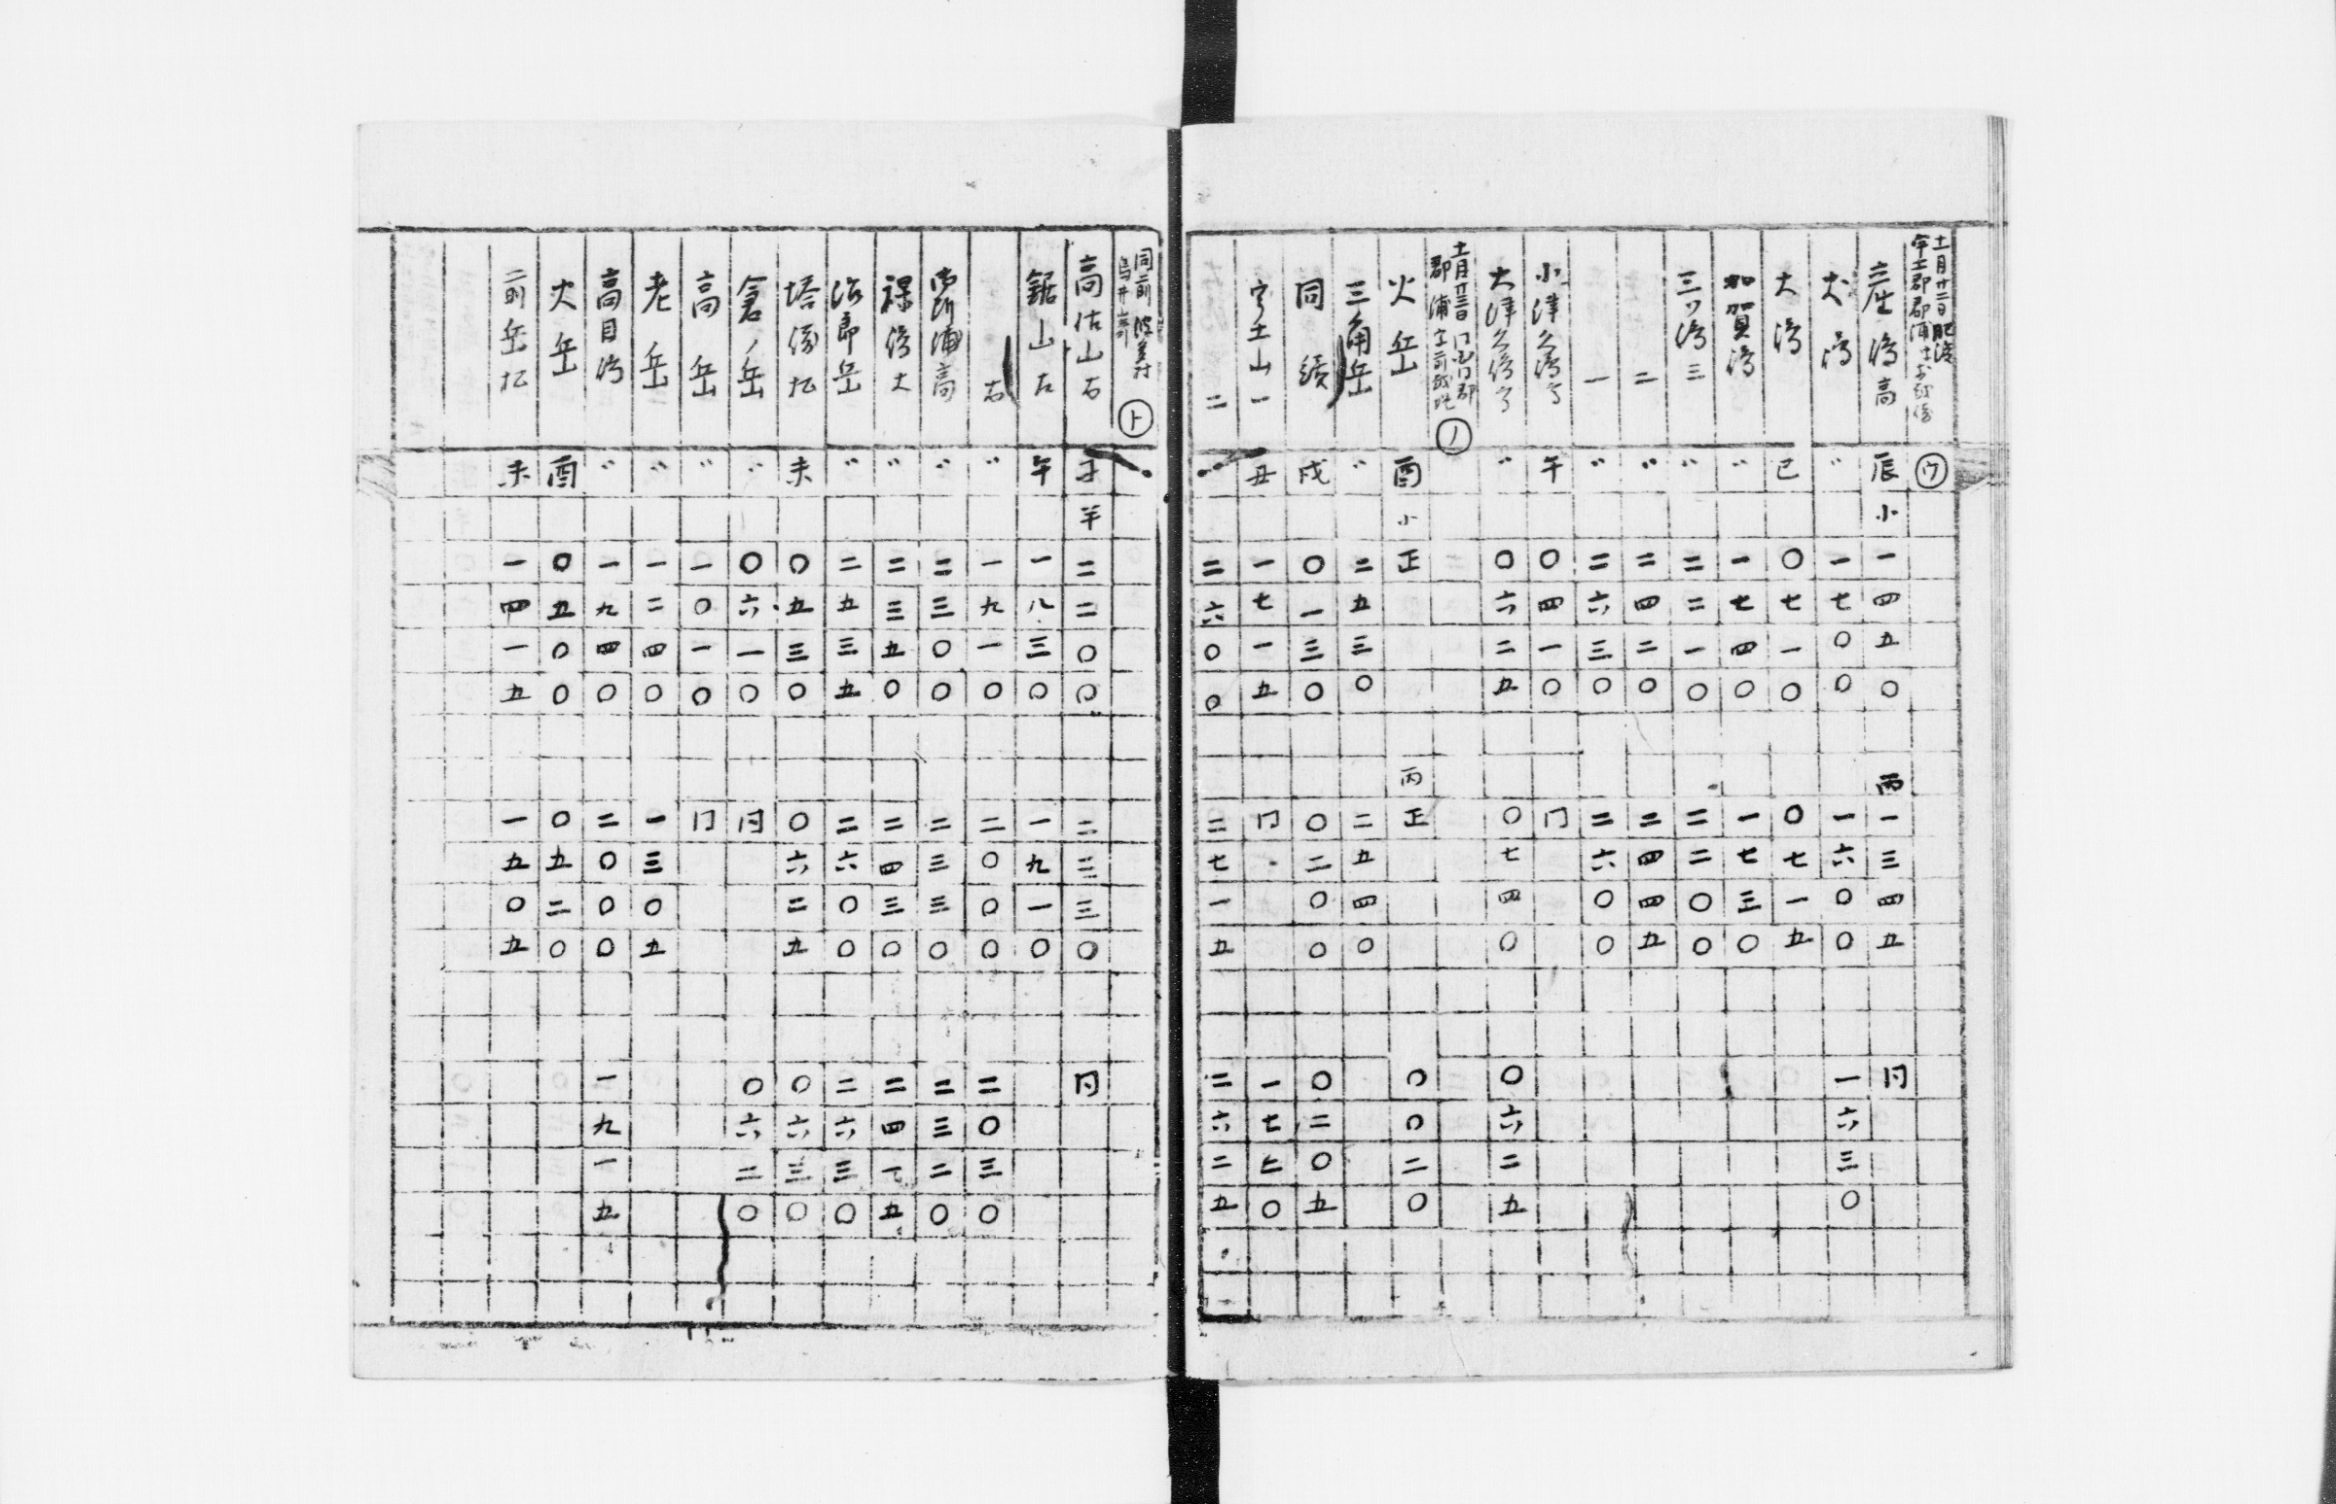 十一月廿二日 肥後
宇土郡郡浦 ㋒
立嶋 高 辰 小 一 四 五 〇 丙 一 三 四 五 同
大嶋 〃 一 七 〇 〇 一 六 〇 〇 一 六 三 〇
大嶋 巳 〇 七 一 〇 〇 七 一 五
加賀嶋 〃 一 七 四 〇 一 七 三 〇
三ツ嶋 三 〃 二 二 一 〇 二 二 〇 〇
二 〃 二 四 二 〇 二 四 四 五
一 〃 二 六 三 〇 二 六 〇 〇
小津久嶋 午 〇 四 一 〇 同
大津久嶋 〃 〇 六 二 五 〇 七 四 〇 〇 六 二 五
十一月廿三日 同国同郡
郡浦 ㋨
火岳 酉 小 正 丙 正 〇 〇 二 〇
三角岳 〃 二 五 三 〇 二 五 四 〇
同 続 戌 〇 一 三 〇 〇 二 〇 〇 〇 二 〇 五
宇土山 一 丑 一 七 一 五 同 一 七 七 〇
二 〃 二 六 〇 〇 二 七 一 五 二 六 二 五
同前 波多村
㋣
高佐山 右 子 半 二 二 〇 〇 二 三 三 〇 同
鋸山 左 午 一 八 三 〇 一 九 一 〇
右 〃 一 九 一 〇 二 〇 〇 〇 二 〇 三 〇
浦 高 〃 二 三 〇 〇 二 三 三 〇 二 三 二 〇
嶋 大 〃 二 三 五 〇 二 四 三 〇 二 四 一 五
治郎岳 〃 二 五 三 五 二 六 〇 〇 二 六 三 〇
塔 未 〇 五 三 〇 〇 六 二 五 〇 六 三 〇
倉ノ岳 〃 〇 六 一 〇 同 〇 六 二 〇
高岳 〃 一 〇 一 〇 同
老岳 〃 一 二 四 〇 一 三 〇 五
高目嶋 〃 一 九 四 〇 二 〇 〇 〇 一 九 一 五
火岳 酉 〇 五 〇 〇 〇 五 二 〇
二則岳 未 一 四 一 五 一 五 〇 五